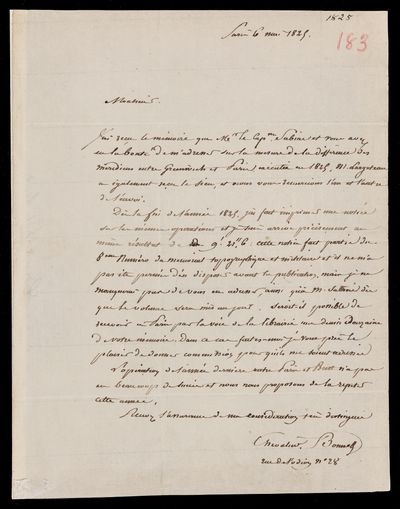 1825
183
Paris 6 mai 1825.
Monsieur
J'ai recu le mémoire que Mr. le Capne Sabine et vous avez
eu la bonté de m'adresser sur la mesure de la différence des
méridiens entre Greenwich et Paris exécutée en 1825, M. Largeteau
a également recu le sien et nous vous remercions l'un et l'autre
de l'envoi.
Dès la fin de l'année 1825, j'ai fait imprimer une notice
sur la même opération et je suis arrivé précisément au
même résultat de 9' 21"6. cette notice fait partie du
8eme Numéro du mémorial topographique et militaire et il ne m'a
pas été permis d'en disposer avant la publication, mais je ne
manquerai pas de vous en adresser, ainsi qu'à M. Sabine dès
que le volume sera mis au jour. serait-il possible de
recevoir à Paris par la voie de la librairie une demie Douzaine
de votre mémoire. dans ce cas faites-moi je vous prie le
plaisir de donner commission pour qu'ils me soient adressés
L'opération de l'année dernière entre Paris et n'a pas
eu beaucoup de succès et nous nous proposons de la répéter
cette année.
Recevez l'assurance de ma considération très distinguée
Chevalier Bonne
rue de No 28